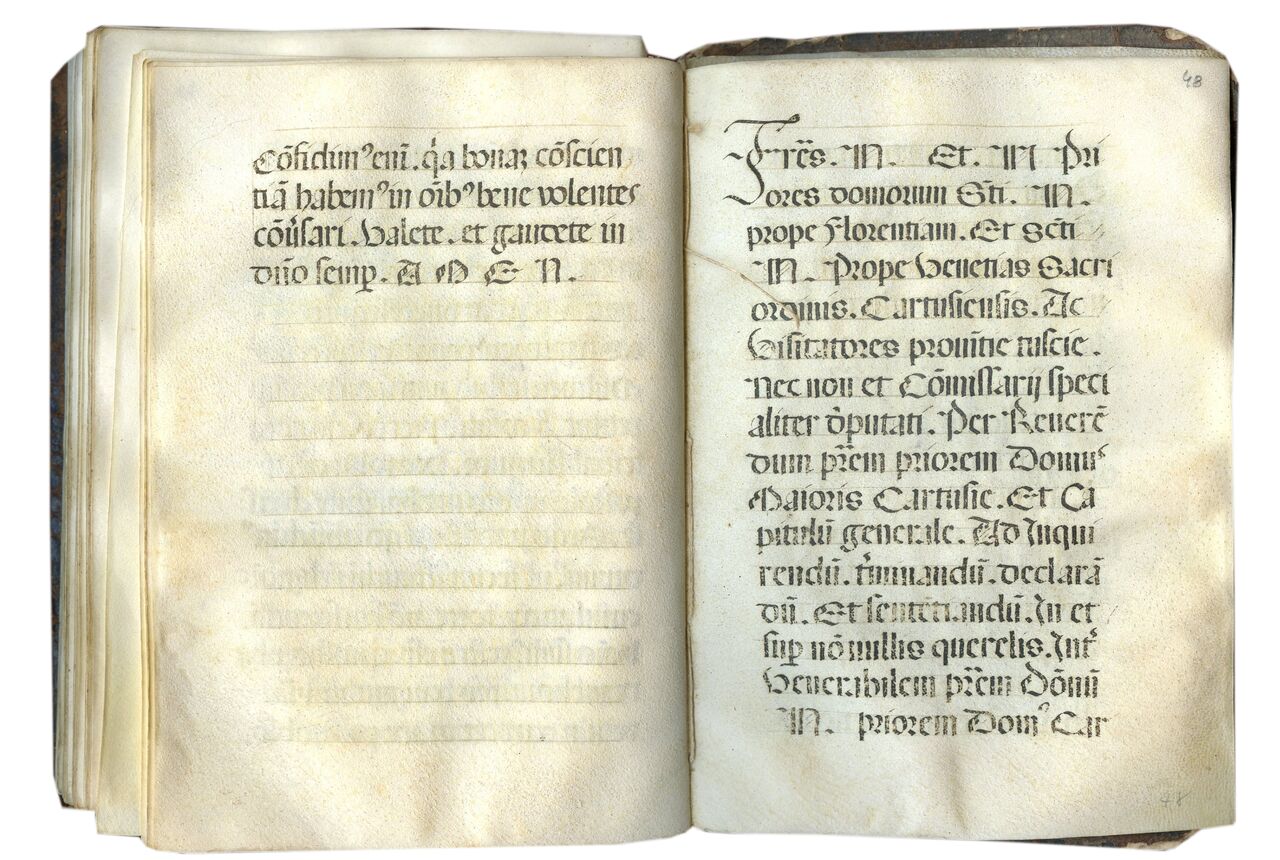 Cõfidimꝰ eni̅. q̇a bonaꝫ cõscien
tiã habemꝰ in oi̅bꝰ bene volentes
cõṽsari. Valete. et gaudete in
dn̅o semp̲. A M E N.
48
Fr̅es. N. Et. N Pri
ores domorum Sti̅. N.
prope florentiam. Et Scti̅
N. Prope Venetias Sacri
ordinis. Cartusiensis. Ac
Visitatores provi̅tie tuscie.
Nec non et Cõmissarij speci
aliter d̅putati. Per Reverẽ
dum pr̅em priorem Domus
Maioris Cartusie. Et Ca
pitulu̅ generale. Ad Inqui
rendu̅. t̅minandu̅. declarã
du̅. Et sentẽtiandu̅. In et
sup̲ nõnullis querelis. Int̅
Venerabilem pr̅em Dõnu̅
N. priorem Domꝰ Car
48